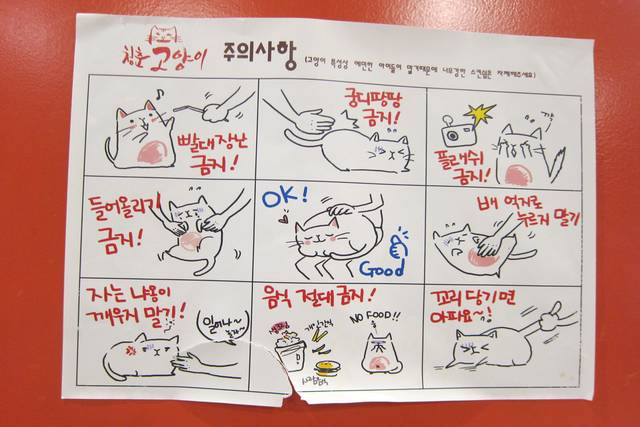 청춘고양이 주의사항
(고양이 특성상 예민한 아이들이 많기때문에 너무강한 스킨쉽은 자제해주세요)
빨대장난
금지!
궁디팡팡
금지!
플래쉬
금지!
들어올리기
금지!
OK!
Good
배 억지로
누르지 말기
자는 냐옹이
깨우지 말기!
일어나~
음식 절대 금지!
NO FOOD!!
사람음식
꼬리 당기면
아파요~!